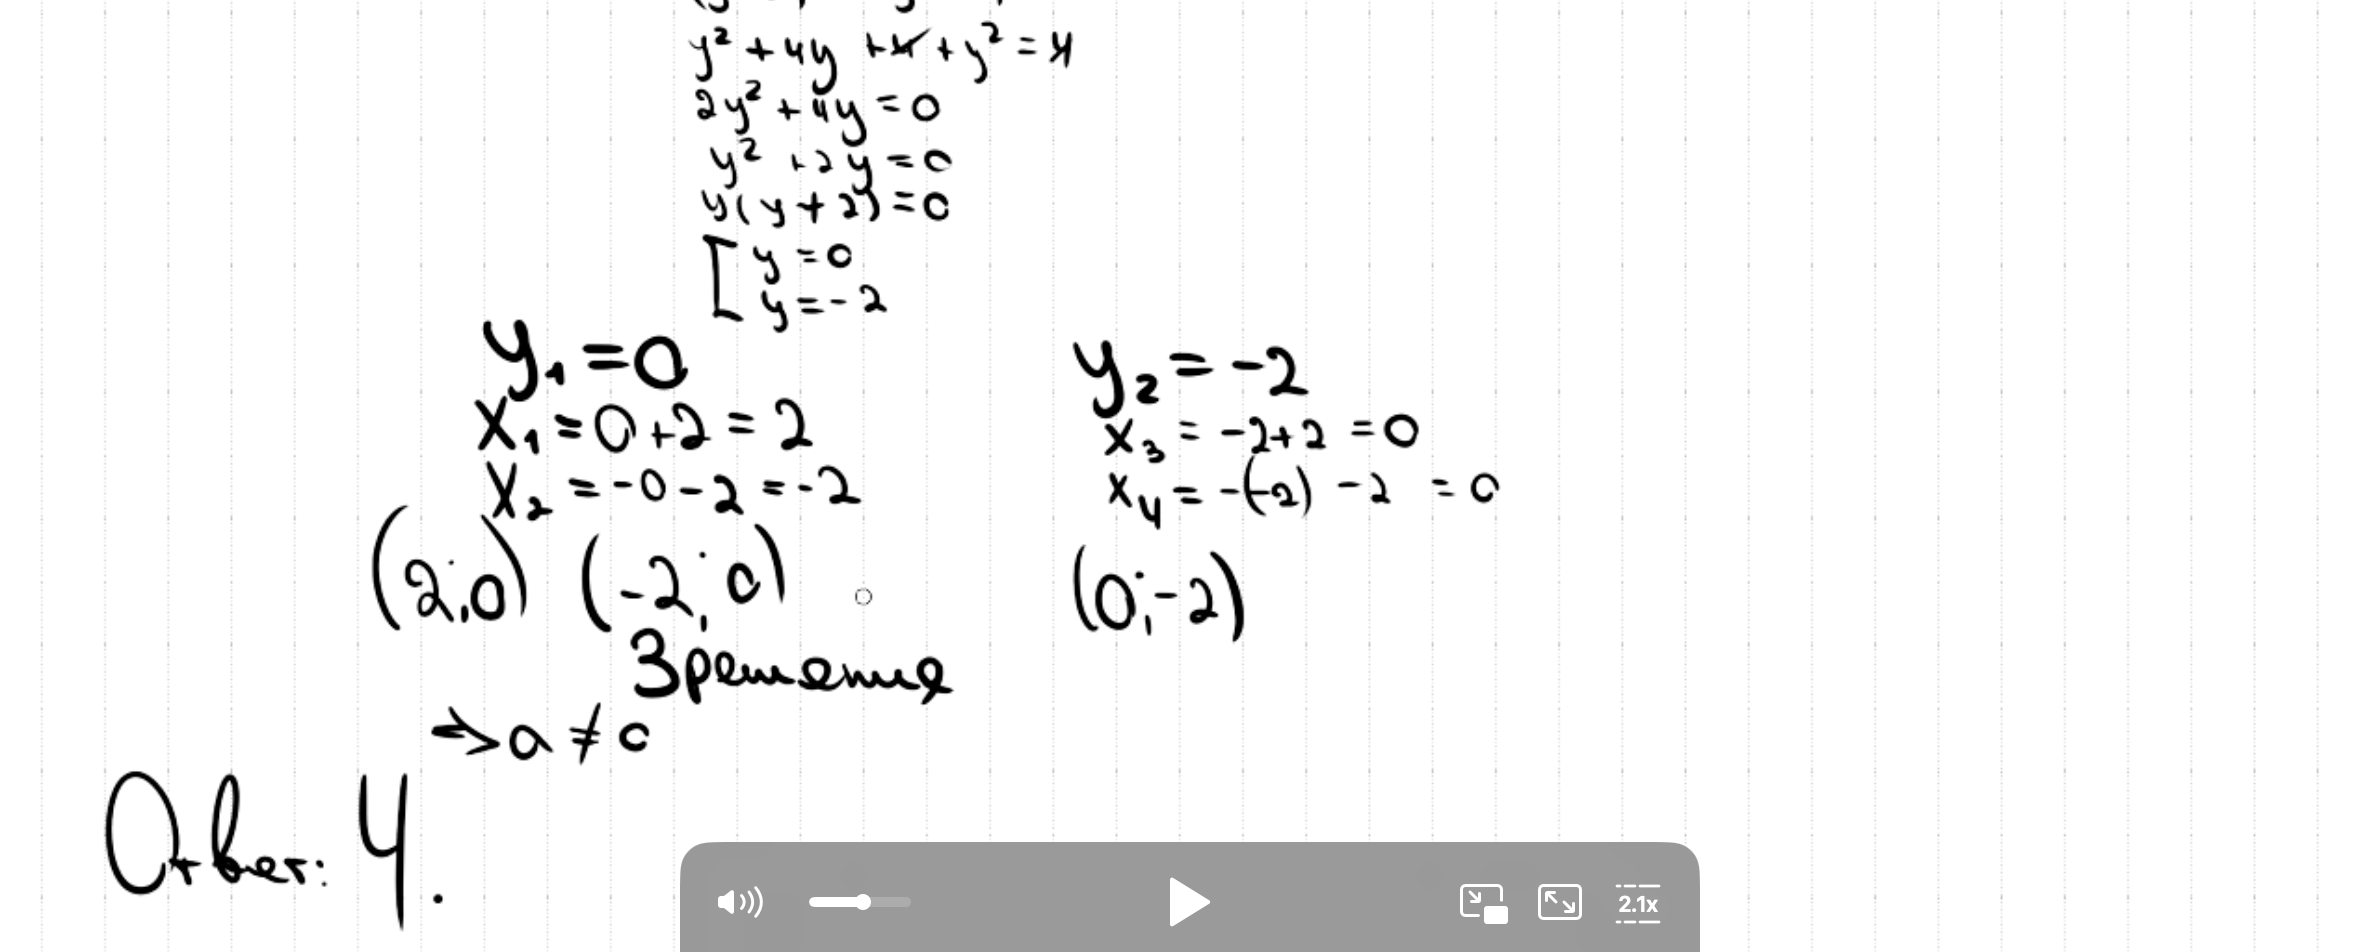 y² + 4y + 4 + y² = 4
2y² + 4y = 0
y² + 2y = 0
y(y + 2) = 0
[ y = 0
y = -2
y₁ = 0
x₁ = 0 + 2 = 2
x₂ = -0 - 2 = -2
(2; 0) (-2; 0)
y₂ = -2
x₃ = -2 + 2 = 0
x₄ = -(-2) - 2 = 0
(0; -2)
3 решения
⇒ a ≠ 0
Ответ: 4.
2.1x